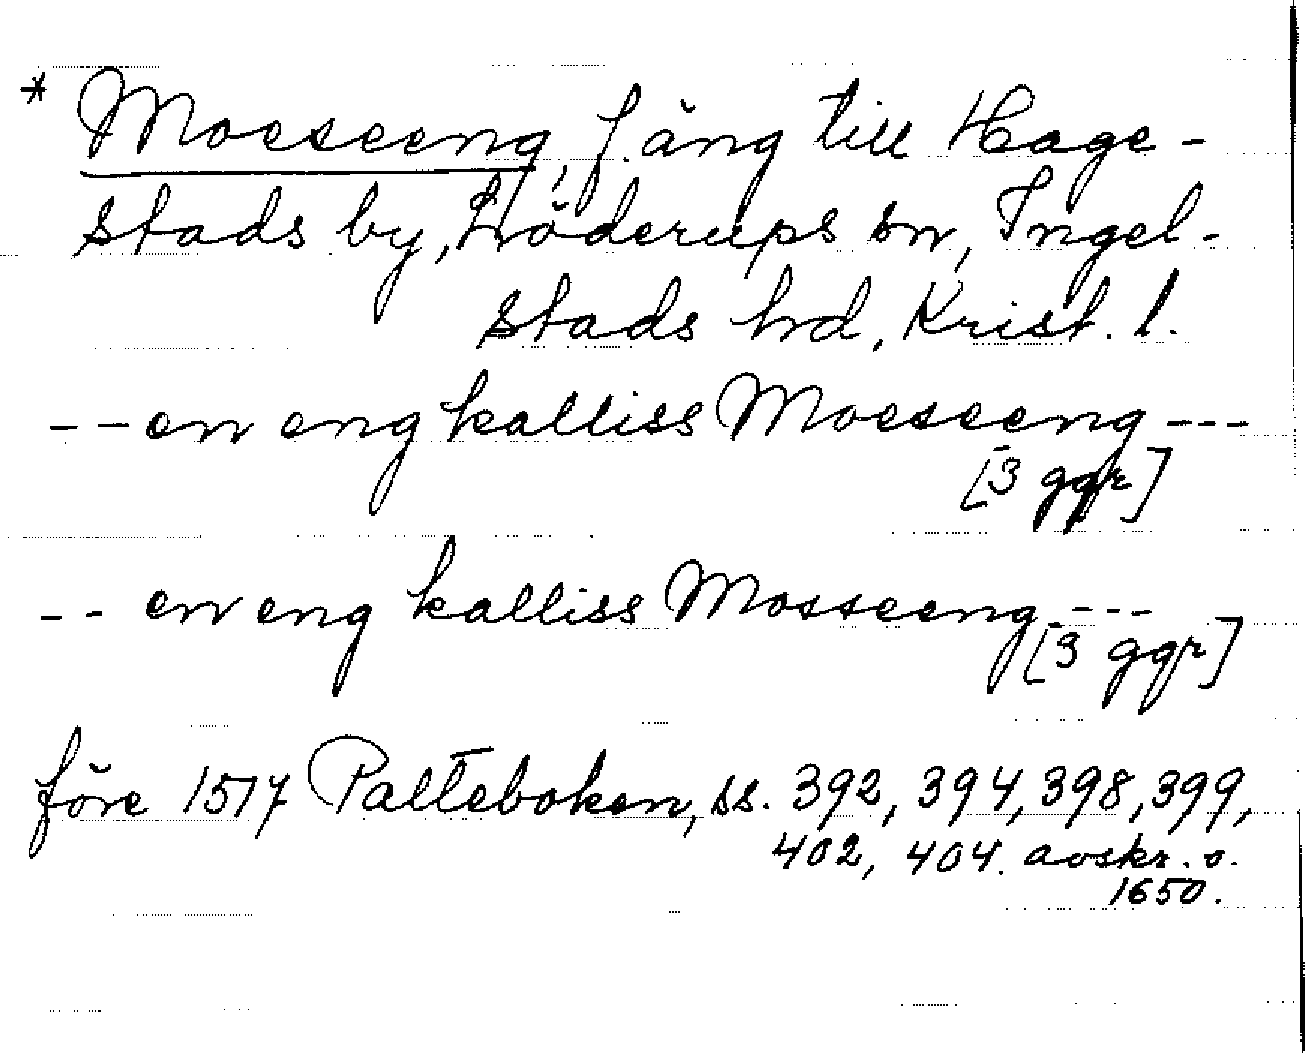 * Moesseeng, f. äng till Hage-
stads by, Löderups sn, Ingel-
stads hd, Krist. l.
-- en eng kalliss Moesseeng ---
[3 ggr]
-- en eng kalliss Mosseeng ---
[3 ggr]
före 1517 Palteboken, ss. 392, 394, 398, 399,
402, 404. avskr. o.
1650.